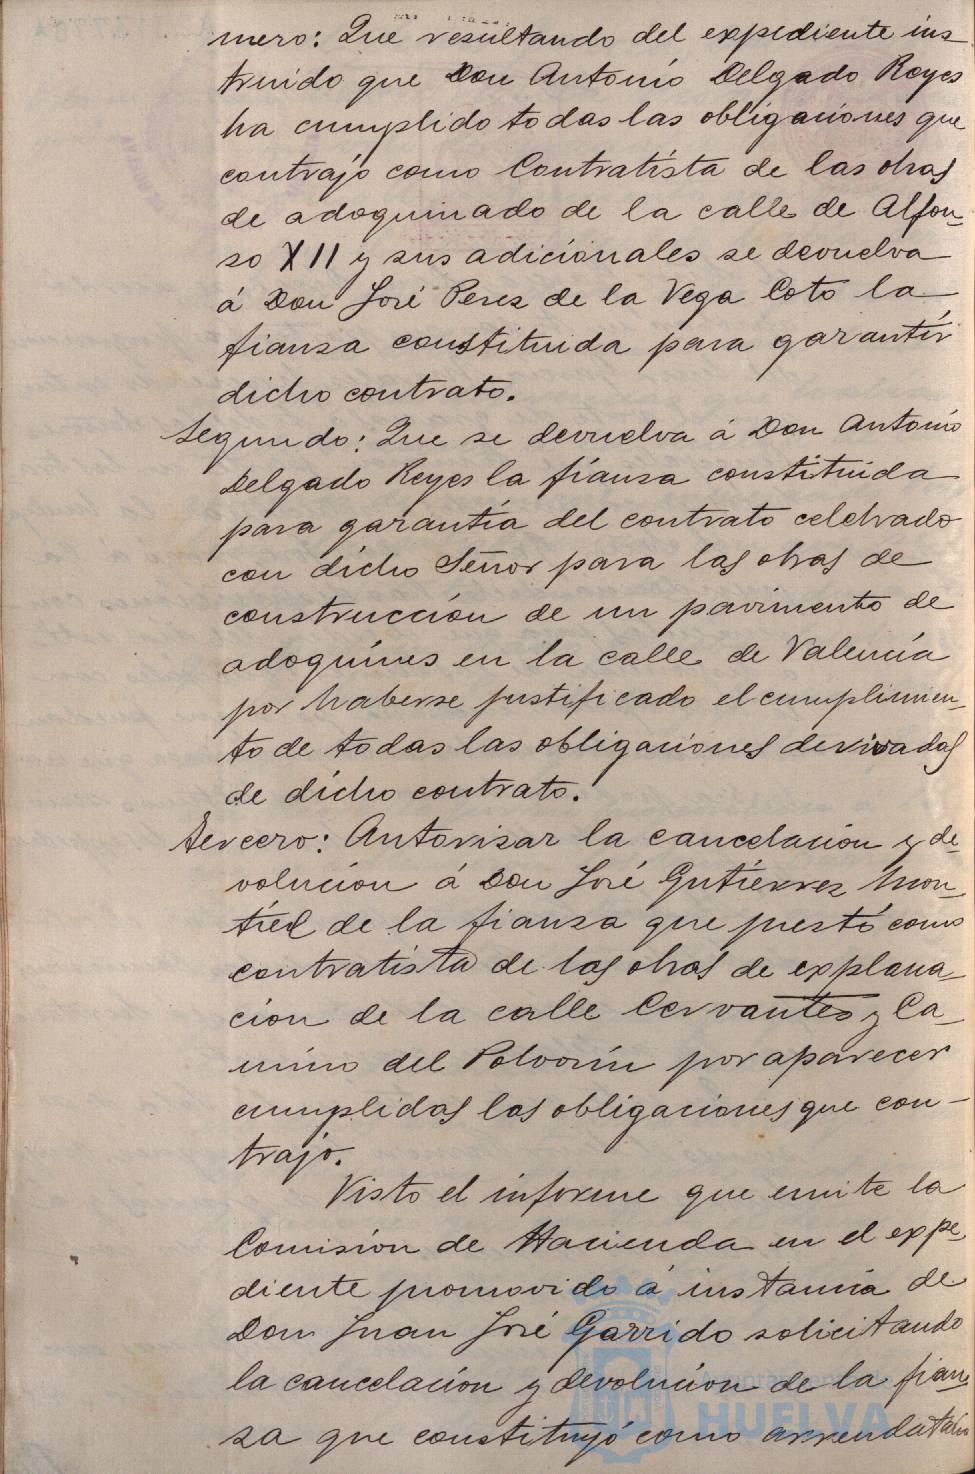 mero: Que resultando del expediente ins
truido que Don Antonio Delgado Reyes
ha cumplido todas las obligaciones que
contrajo como Contratista de las obras
de adoquinado de la calle de Alfon-
so XII y sus adicionales se devuelva
á Don José Perez de la Vega Coto la
fianza constituida para garantir
dicho contrato.
Segundo: Que se devuelva á Don Antonio
Delgado Reyes la fianza constituida
para garantia del contrato celebrado
con dicho Señor para las obras de
construcción de un pavimento de
adoquines en la calle de Valencia
por haberse justificado el cumplimien-
to de todas las obligaciones derivadas
de dicho contrato.
Tercero: Autorizar la cancelación y de-
volución á Don José Gutiérrez Mon-
tiel de la fianza que prestó como
contratista de las obras de explana-
ción de la calle Cervantes y Ca-
mino del Polvorín por aparecer
cumplidas las obligaciones que con-
trajo.
Visto el informe que emite la
Comisión de Hacienda en el expe-
diente promovido á instancia de
Don Juan José Garrido solicitando
la cancelación y devolución de la fian-
za que constituyó como arrendatario
HUELVA